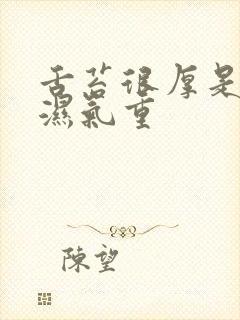 舌苔很厚是
濕氣重
陳望